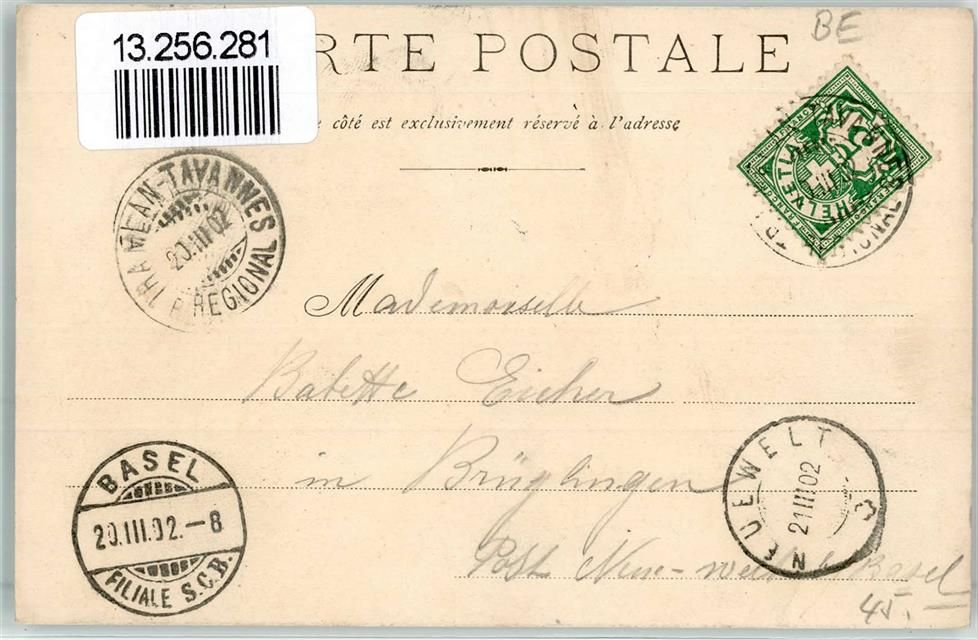 13.256.281
BE
RTE POSTALE
côté est exclusivement réservé à l'adresse
TRAMELAN-TAVANNES
20.III.02
REGIONAL
HELVETIA
FRANCO
Mademoiselle
Babette Eicher
in Brüglingen
Post Neue-welt b/Basel
45.-
BASEL
20.III.02.-8
FILIALE S.C.B.
NEUEWELT
21.III.02
3